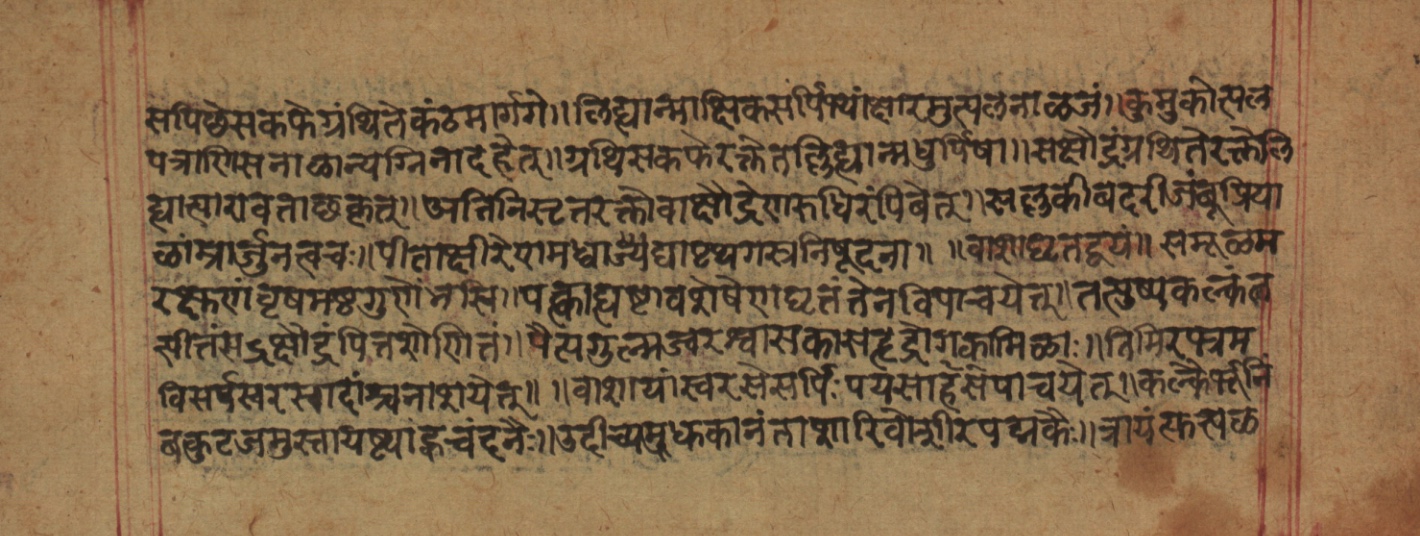 सपिछेसकफेग्रंथितेकंठमार्गगे॥लिह्यान्माक्षिकसर्पिर्भ्यांक्षारमुत्पलनाळजं॥कुमुकोत्पल
पत्राणिसनाळान्यग्निनादहेत्॥ग्रथिसकफेरक्तेतल्लिह्यान्मधुर्पिषा॥सक्षौद्रंग्रथितेरक्तेलि
ह्यात्पारावताछकृत्॥अतिनिसृतरक्तोवाक्षौद्रेणरुधिरंपिबेत्॥सल्लकीबदरीजंबूप्रिया
ळांम्रार्जुनत्वचः॥पीताक्षीरेणमध्वाज्यंद्यापृथगस्रनिषूदना॥ ॥वाशाघृतद्वयं॥समूळम
स्तकंवृषमष्टगुणेंभसि॥पत्काद्यष्टावशेषेणघृतंतेनविपाचयेत्॥तत्पुष्पकल्कंत
सीतंसक्षौद्रंपित्तशोणितं॥पैत्यगुल्मज्वरश्वासकासहृद्रोगकामिळाः॥तिमिरभ्रम
विसर्पस्वरसादांश्चनाशयेत्॥ ॥वाशायांस्वरसेसर्पिःपयसार्द्धंसेपाचयेत्॥कल्कैर्भूनिं
बकुटजमुस्तायष्ट्याह्वचंदनैः॥उदीच्यमधुकानंताशारिवोशीरपद्मकैः॥त्रायंत्फलळ